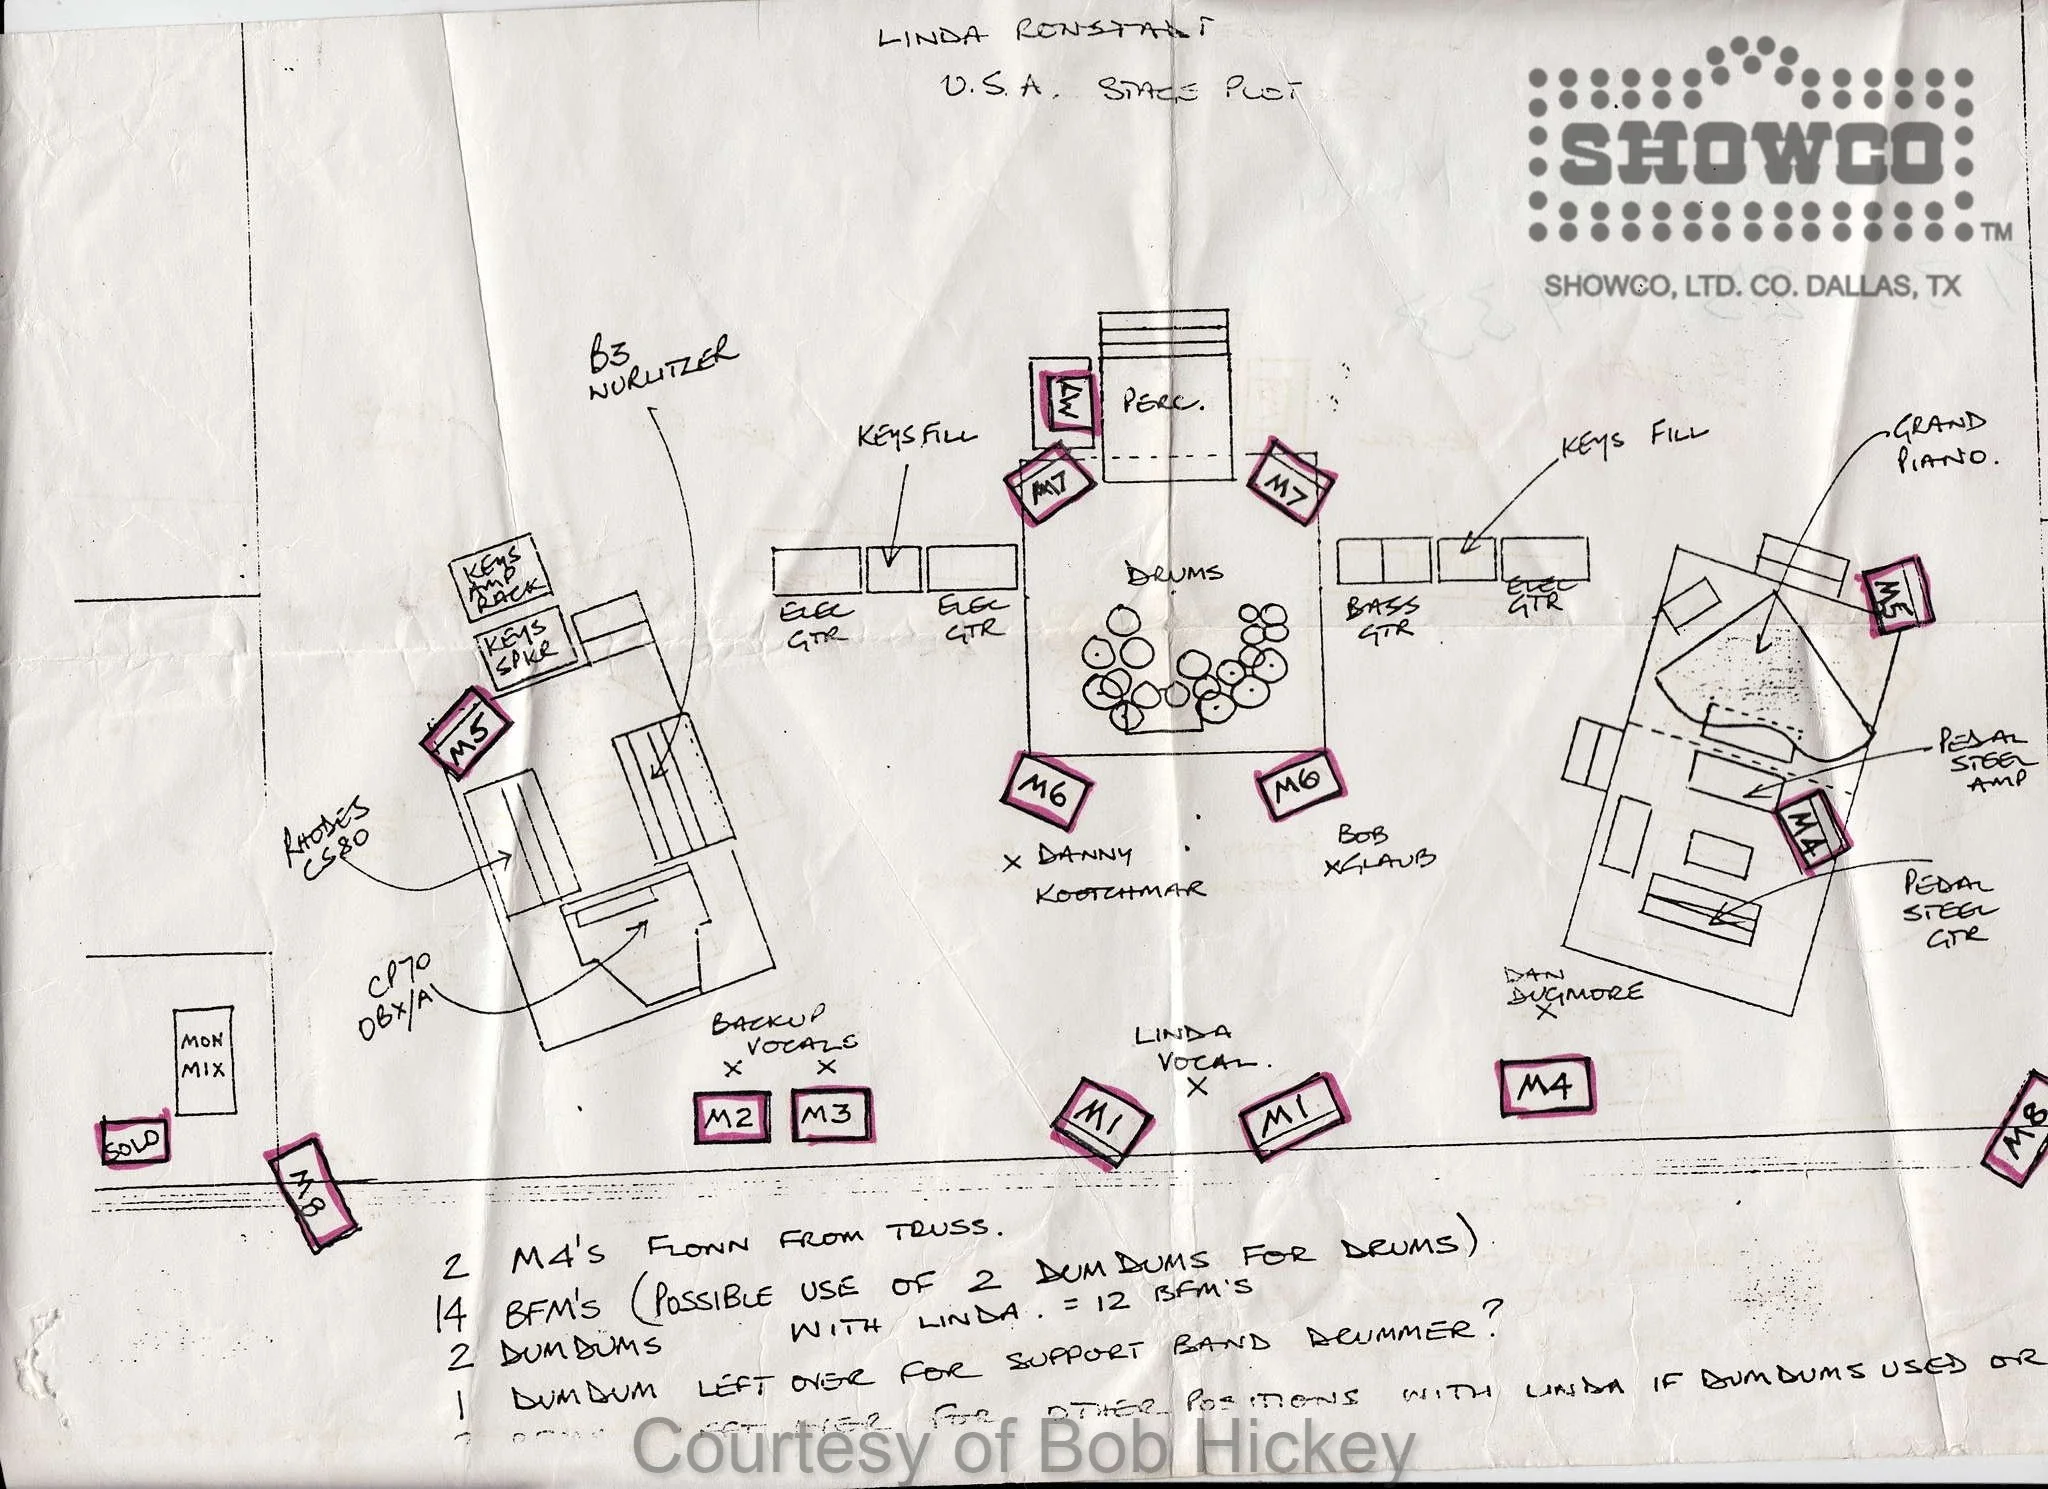 LINDA RONSTADT
U.S.A. STAGE PLOT
SHOWCO
TM
SHOWCO, LTD. CO. DALLAS, TX
B3
WURLITZER
KEYS FILL
PERC.
M7
M7
KEYS FILL
GRAND
PIANO.
KEYS
AMP
RACK
KEYS
SPKR
ELEC
GTR
ELEC
GTR
DRUMS
BASS
GTR
ELEC
GTR
M5
M5
RHODES
CS80
M6
M6
PEDAL
STEEL
AMP
M4
X DANNY
KOOTCHMAR
BOB
X GLAUB
PEDAL
STEEL
GTR
CP70
DBX/A
DAN
DUGMORE
X
BACKUP
VOCALS
X X
LINDA
VOCAL.
X
MON
MIX
SOLO
M8
M2
M3
M1
M1
M4
M8
2 M4'S FLOWN FROM TRUSS.
14 BFM'S (POSSIBLE USE OF 2 DUMDUMS FOR DRUMS)
2 DUMDUMS WITH LINDA. = 12 BFM'S
1 DUMDUM LEFT OVER FOR SUPPORT BAND DRUMMER?
OVER FOR OTHER POSITIONS WITH LINDA IF DUMDUMS USED OR
Courtesy of Bob Hickey